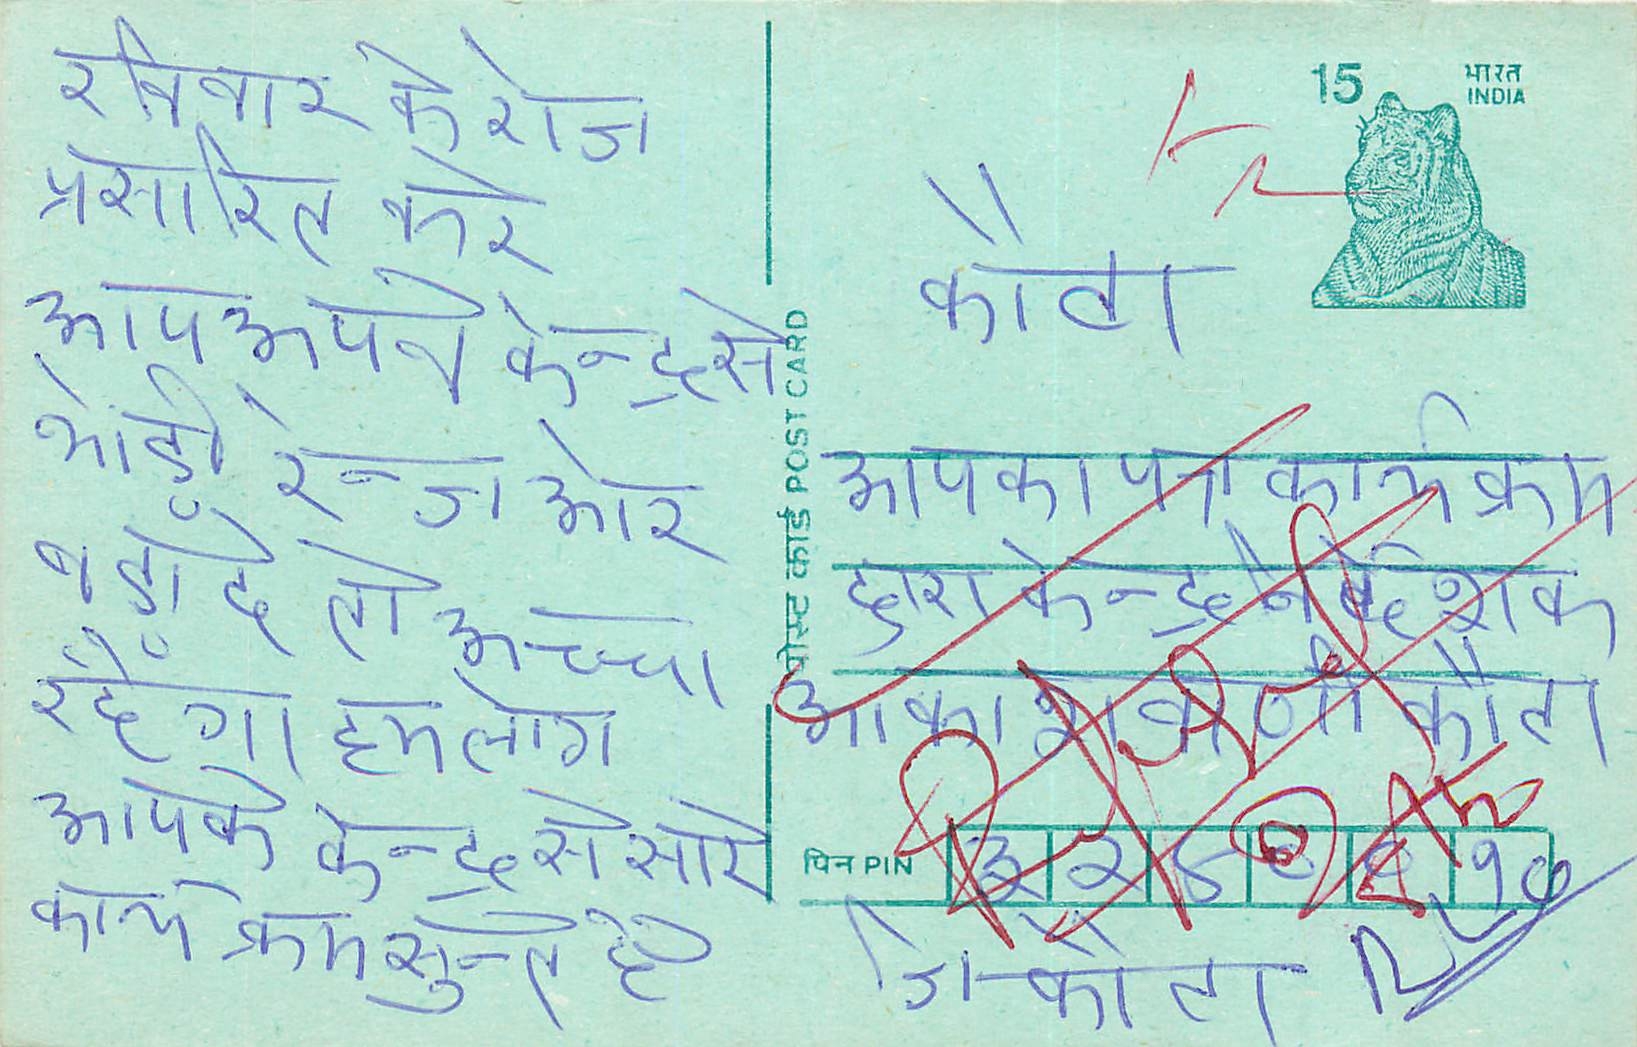 रविवार के रोज
प्रसारित करे
आप अपने केन्द्र से
थोडी रेन्ज ओर
बडाँ दे तो अच्छा
रहेँगा हम लोग
आपके केन्द्र से सारे
कार्य क्रम सुन्ते है
15 भारत
INDIA
कौटा
पोस्ट कार्ड POST CARD
आपका पत्र कार्य क्रम
द्वारा केन्द्र नेर्देशक
आकाशवाणी कौटा
पिन PIN
जि कौटा